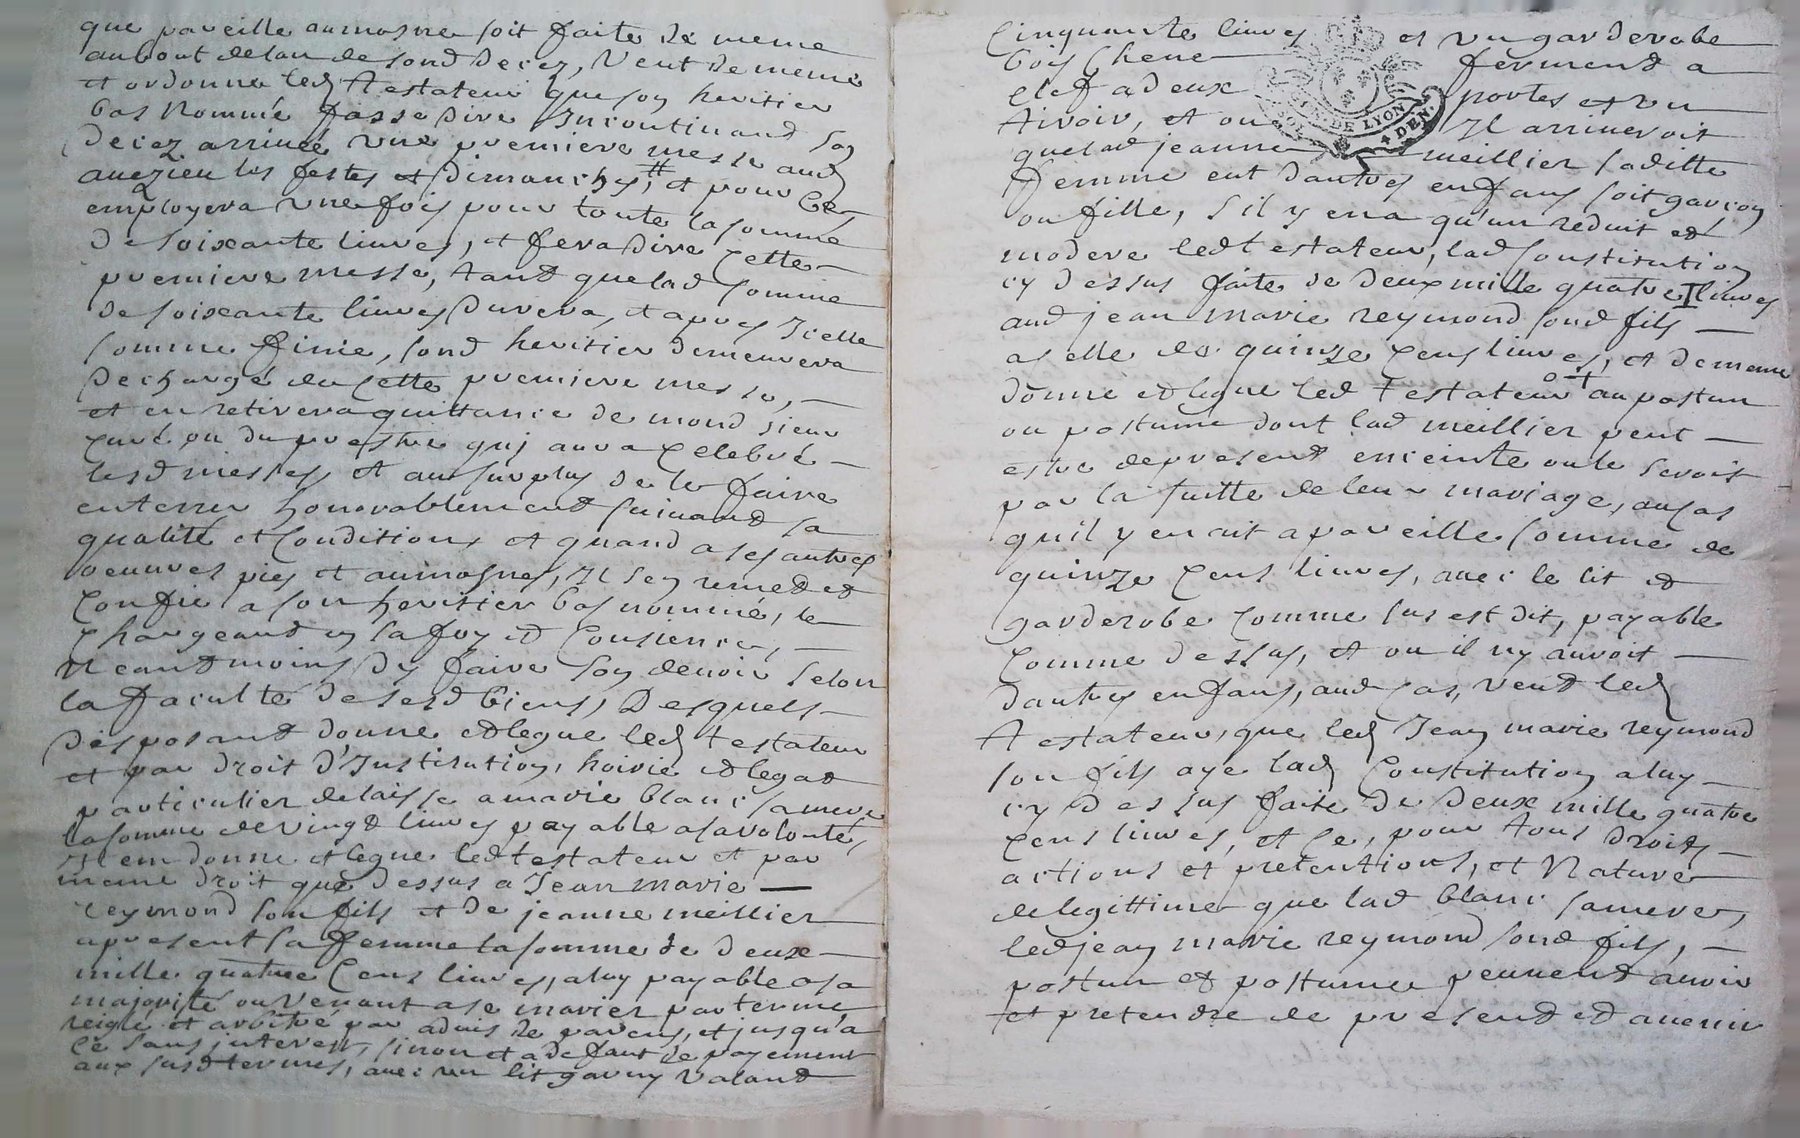 que pareille aumosne soit faite de meme
au bout de lan de sond decez, Veut de meme
et ordonne led testateur que son heritier
bas Nommé fasse dire Incontinand son
decez arrivée une premiere messe aud
auezieu les festes et dimanches, ++ et pour ce
employera une fois pour toute la somme
de soixante livres, et fera dire cette
premiere messe, tand que lad somme
de soixante livres durera, et apres Icelle
somme finie, sond heritier demeurera
dechargé de cette premiere messe,
et en retirera quittance de mond sieur
curé ou du prestre quj aura celebré
lesd messes et au surplus de le faire
enterrer honorablement suivand sa
qualité et Conditions et quand a ses autres
oeuvres pies et aumosnes, Il sen remet et
confie a son heritier bas nommé, le
chargeand en sa foy et Consience,
Neantmoins dy faire son devoir selon
la faculté de sesd biens, Desquels
disposant donne et legue led testateur
et par droit d'Institution, hoirie et legat
particulier delaisse a marie blanc sa mere
la somme de vingt livres payable a sa volonté,
Item donne et legue led testateur et par
meme droit que dessus a Jean marie
reymond son fils et de jeanne meillier
apresent sa femme la somme de deux
mille quatre Cens livres, a luy payable a sa
majorité ou venant a se marier par terme
reiglé et arbitré par advis de parens, et jusqu'a
ce sans interest, sinon et a defaut de payement
aux susd termes, avec un lit garny valand
Cinquante livres et un garderobe
bois Chene fermend a
clef a deux portes et un
tiroir, et ou Il arriveroit
que lad jeanne meillier sa ditte
femme eut dautres enfans soit garcon
ou fille, s'il y en a qu'un reduit et
modere led testateur, lad Constitution
cy dessus faite de deux mille quatre I livres
aud jean marie reymond sond fils
a celle de quinze Cens livres, et de meme
donne et legue led testateur o+ au postun
ou postume dont lad meillier peut
estre de present enceinte ou le seroit
par la suitte de leur mariage, au cas
qu'il y en eut a pareille somme de
quinze Cens livres, avec le lit et
garderobe comme sus est dit, payable
comme dessus, et ou il ny auroit
dautres enfans, aud cas, veut led
testateur, que led Jean marie reymond
son fils aye lad Constitution a luy
cy dessus faite de deux mille quatre
cens livres, et ce, pour tous droits
actions et pretentions, et Nature
de legittime que lad blanc sa mere,
led jean marie reymond sond fils,
postun et postume peuvent avoir
et pretendre de present et avenir
GEN. DE LYON
SOL
4 DEN.